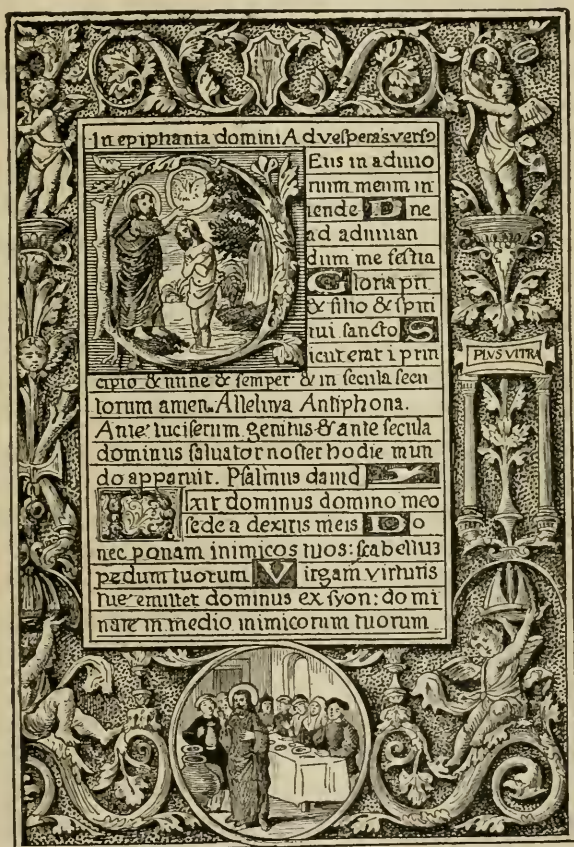 In epiphania domini Ad vesperas vers
Eus in adiuto
rium meum in
tende Dne
ad adiuuan
dum me festia
Gloria pri
& filio & spiri
tui sancto S
icut erat i prin
cipio & nunc & semper & in secula secu
lorum amen. Alleluya Antiphona.
Ante luciferum genitus & ante secula
dominus saluator noster hodie mun
do apparuit. Psalmus dauid
Ixit dominus domino meo
sede a dextris meis Do
nec ponam inimicos tuos: scabellus
pedum tuorum Virgam virtutis
tue emittet dominus ex syon: do mi
nare in medio inimicorum tuorum
PLVS VLTRA